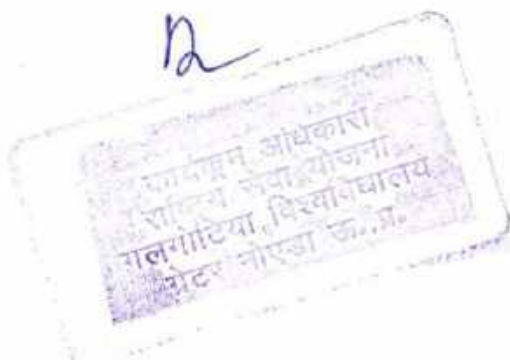 कार्यक्रम अधिकारी
राष्ट्रिय सेवा योजना
गलगोटिया, विश्वविद्यालय
ग्रेटर नोएडा ऊ.,प्र.